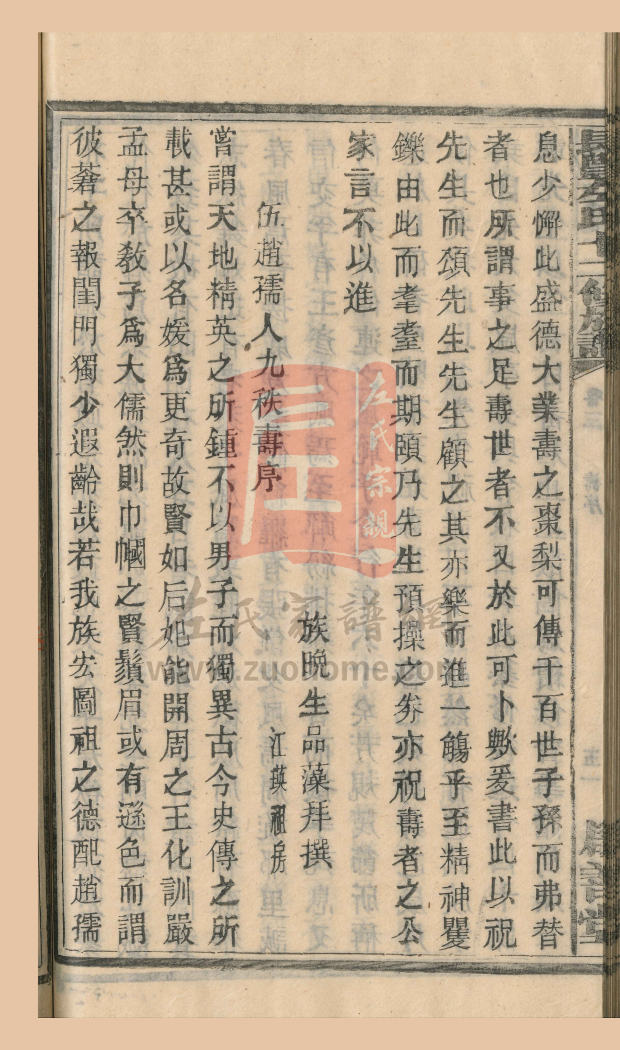 息少懈此盛德大業壽之棗梨可傳千百世子孫而弗替
者也所謂事之足壽世者不又於此可卜歟爰書此以祝
先生而頌先生先生顧之其亦樂而進一觴乎至精神矍
鑠由此而耄耋而期頤乃先生預操之券亦祝壽者之公
家言不以進
伍趙孺人九秩壽序
族晚生品藻拜撰
江瑛祖房
嘗謂天地精英之所鍾不以男子而獨異古今史傳之所
載甚或以名媛爲更奇故賢如后妃能開周之王化訓嚴
孟母卒教子爲大儒然則巾幗之賢鬚眉或有遜色而謂
彼蒼之報閨門獨少遐齡哉若我族宏圖祖之德配趙孺
左氏宗親
左氏家譜網
www.zuohome.com